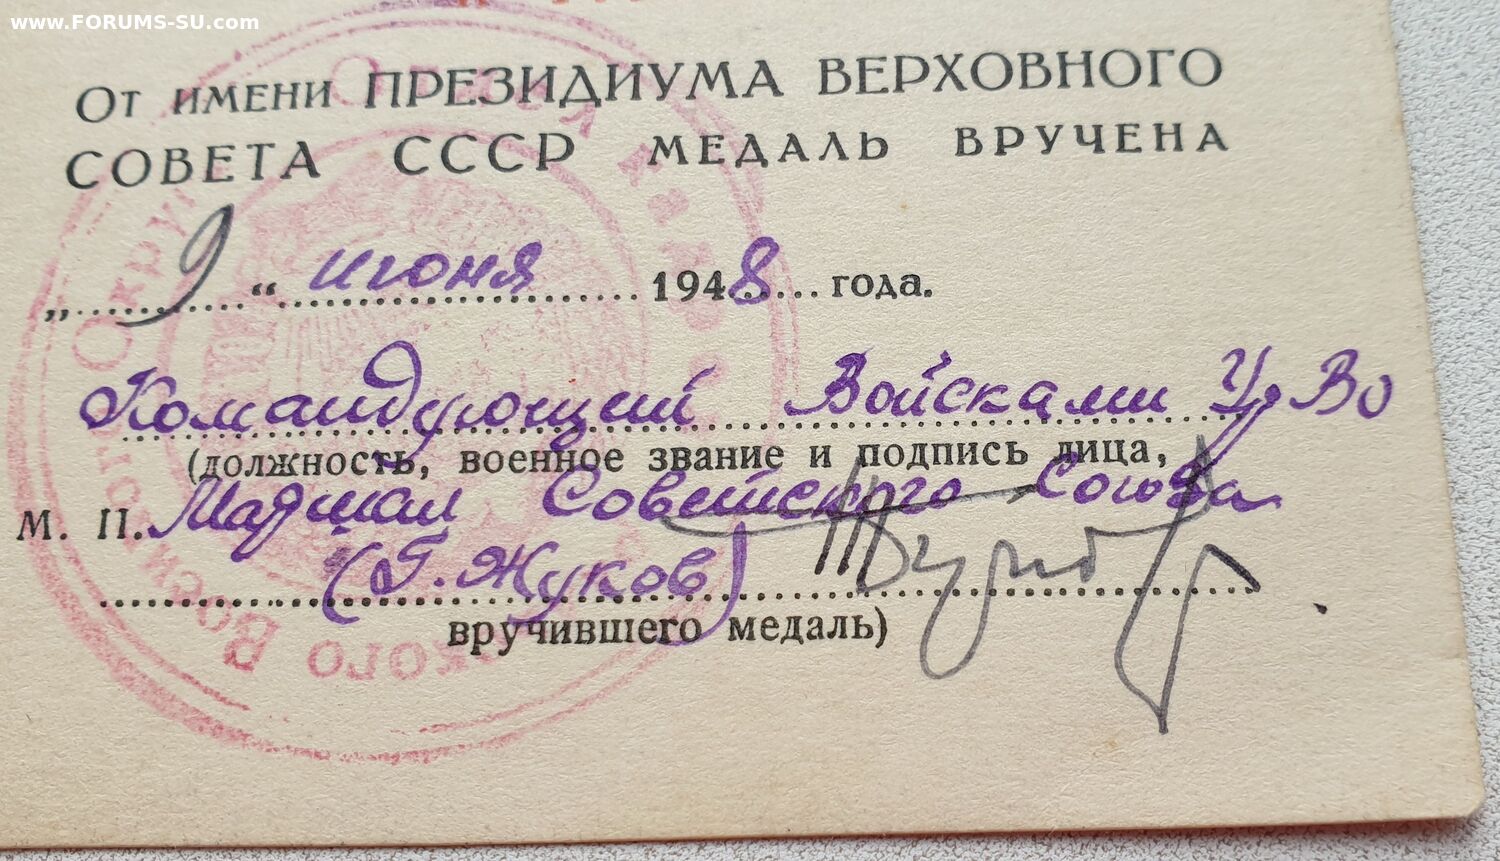 www.FORUMS-SU.com
От имени ПРЕЗИДИУМА ВЕРХОВНОГО
СОВЕТА СССР МЕДАЛЬ ВРУЧЕНА
„ 9 “ июня 1948 года.
Командующий Войсками УрВо
(должность, военное звание и подпись лица,
М. П. Маршал Советского Союза
(Г. Жуков)
вручившего медаль)